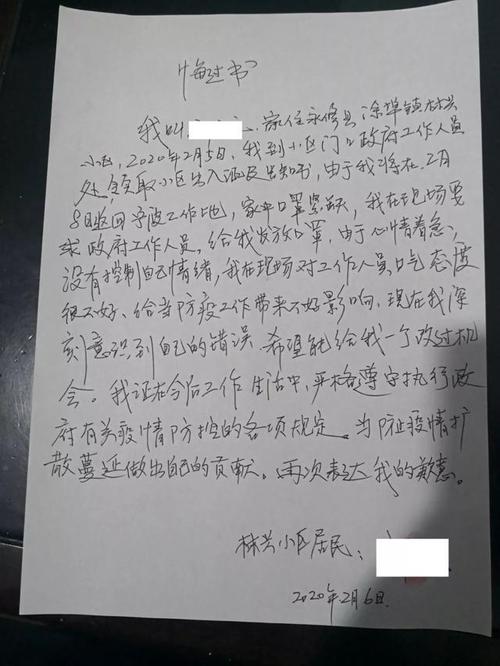 悔过书
我叫 家住永修县涂埠镇林兴
小区,2020年2月5日,我到小区门口政府工作人员
处,领取小区出入证及告知书,由于我将在2月
8日返回宁波工作地,家中口罩紧缺,我在现场要
求政府工作人员,给我发放口罩,由于心情着急,
没有控制自己情绪,我在现场对工作人员口气态度
很不好、给 防疫工作带来不好影响,现在我深
刻意识到自己的错误,希望能给我一个改过机
会。我证在今后工作生活中,严格遵守执行政
府有关疫情防控的各项规定。为防止疫情扩
散蔓延做出自己的贡献。再次表达我的歉意。
林兴小区居民:
2020年2月6日